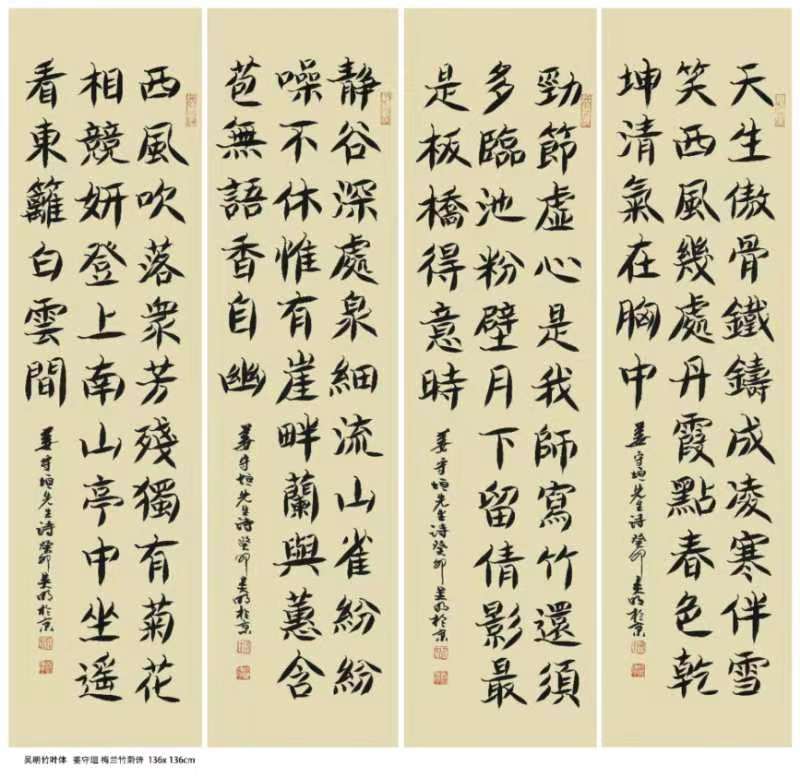 天生傲骨鐵鑄成凌寒伴雪
笑西風幾處丹霞點春色乾
坤清氣在胸中
姜守垣先生诗癸卯吴明於京
勁節虛心是我師寫竹還須
多臨池粉壁月下留倩影最
是板橋得意時
姜守垣先生诗癸卯吴明於京
靜谷深處泉細流山雀紛紛
噪不休惟有崖畔蘭與蕙含
苞無語香自幽
姜守垣先生诗癸卯吴明於京
西風吹落衆芳殘獨有菊花
相競妍登上南山亭中坐遥
看東籬白雲間
姜守垣先生诗癸卯吴明於京
吴明竹叶体 姜守垣 梅兰竹菊诗 136x 136cm